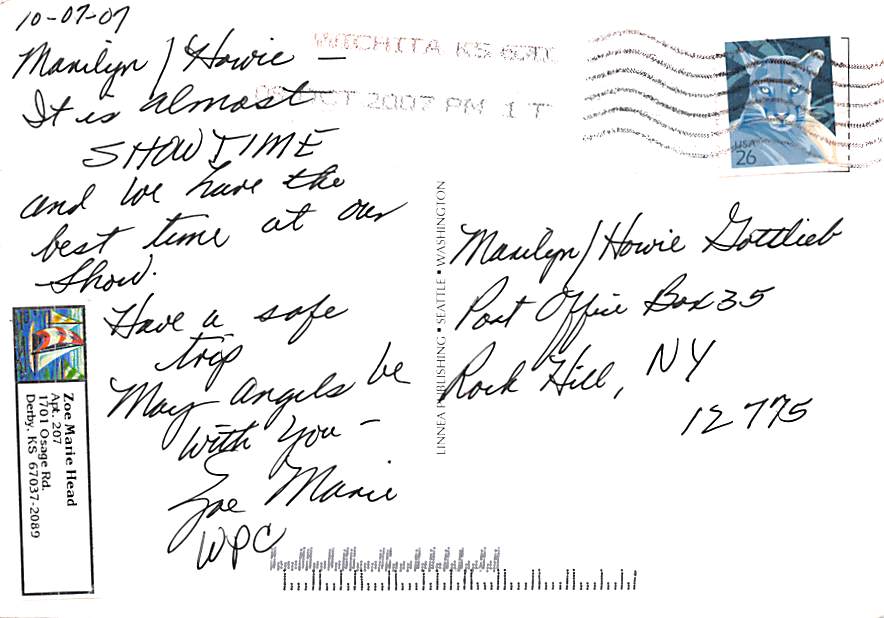 10-07-07
Marilyn / Howie —
It is almost
SHOWTIME
and we have the
best time at our
Show.
Have a safe
trip
May angels be
with you —
Zoe Marie
WPC
WICHITA KS
OCT 2007 PM 1 T
USA
26
LINNEA PUBLISHING • SEATTLE • WASHINGTON
Marilyn / Howie Gottlieb
Post Office Box 35
Rock Hill, NY
12775
Zoe Marie Head
Apt. 207
1701 Osage Rd.
Derby, KS 67037-2089